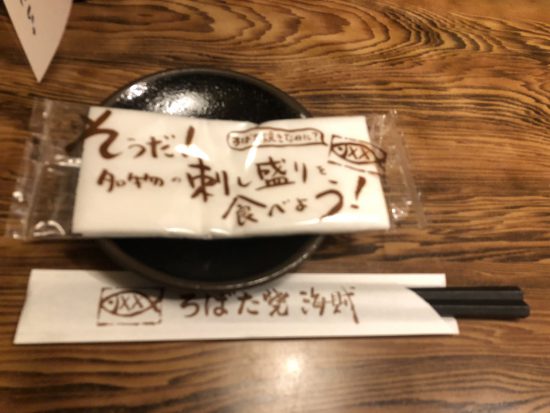 そうだ!
名物の刺し盛りを
食べよう!
ろばた焼 海賊